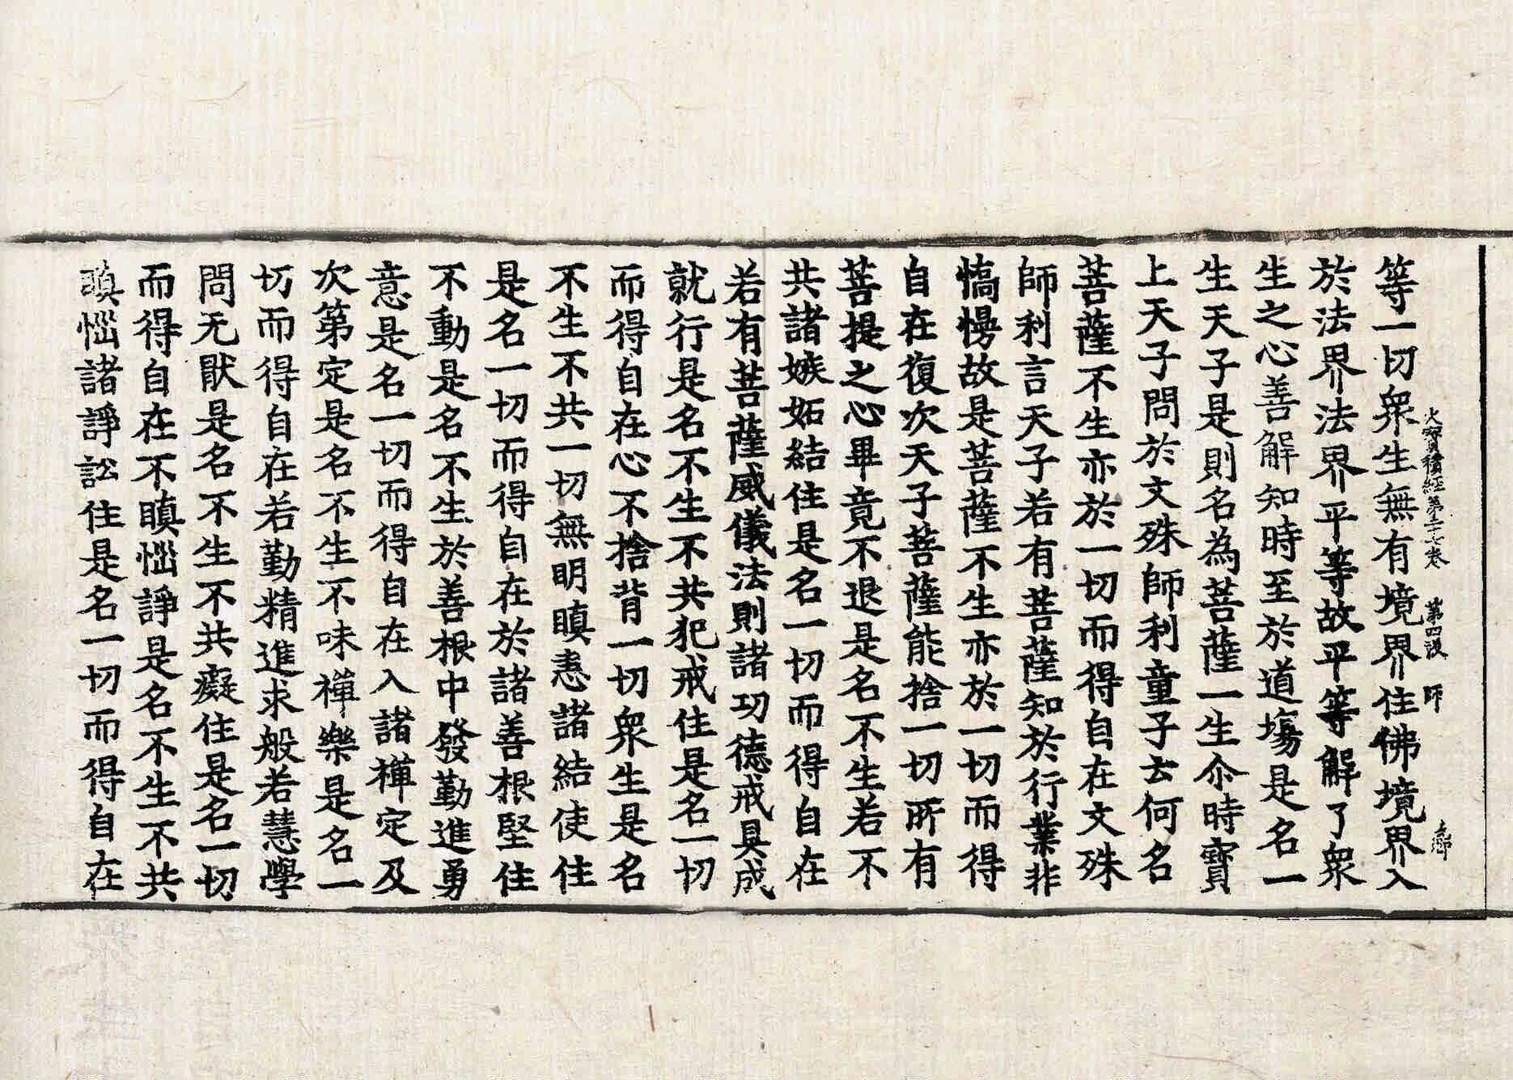 大寶積經第三十七卷　第四張　師
等一切衆生無有境界住佛境界入
於法界法界平等故平等解了衆
生之心善解知時至於道塲是名一
生天子是則名為菩薩一生尒時寳
上天子問於文殊師利童子云何名
菩薩不生亦於一切而得自在文殊
師利言天子若有菩薩知於行業非
憍慢故是菩薩不生亦於一切而得
自在復次天子菩薩能捨一切所有
菩提之心畢竟不退是名不生若不
共諸嫉妬結住是名一切而得自在
若有菩薩威儀法則諸功德戒具成
就行是名不生不共犯戒住是名一切
而得自在心不捨背一切衆生是名
不生不共一切無明瞋恚諸結使住
是名一切而得自在於諸善根堅住
不動是名不生於善根中發勤進勇
意是名一切而得自在入諸禪定及
次第定是名不生不味禪樂是名一
切而得自在若勤精進求般若慧學
問无猒是名不生不共癡住是名一切
而得自在不瞋惱諍是名不生不共
瞋惱諸諍訟住是名一切而得自在